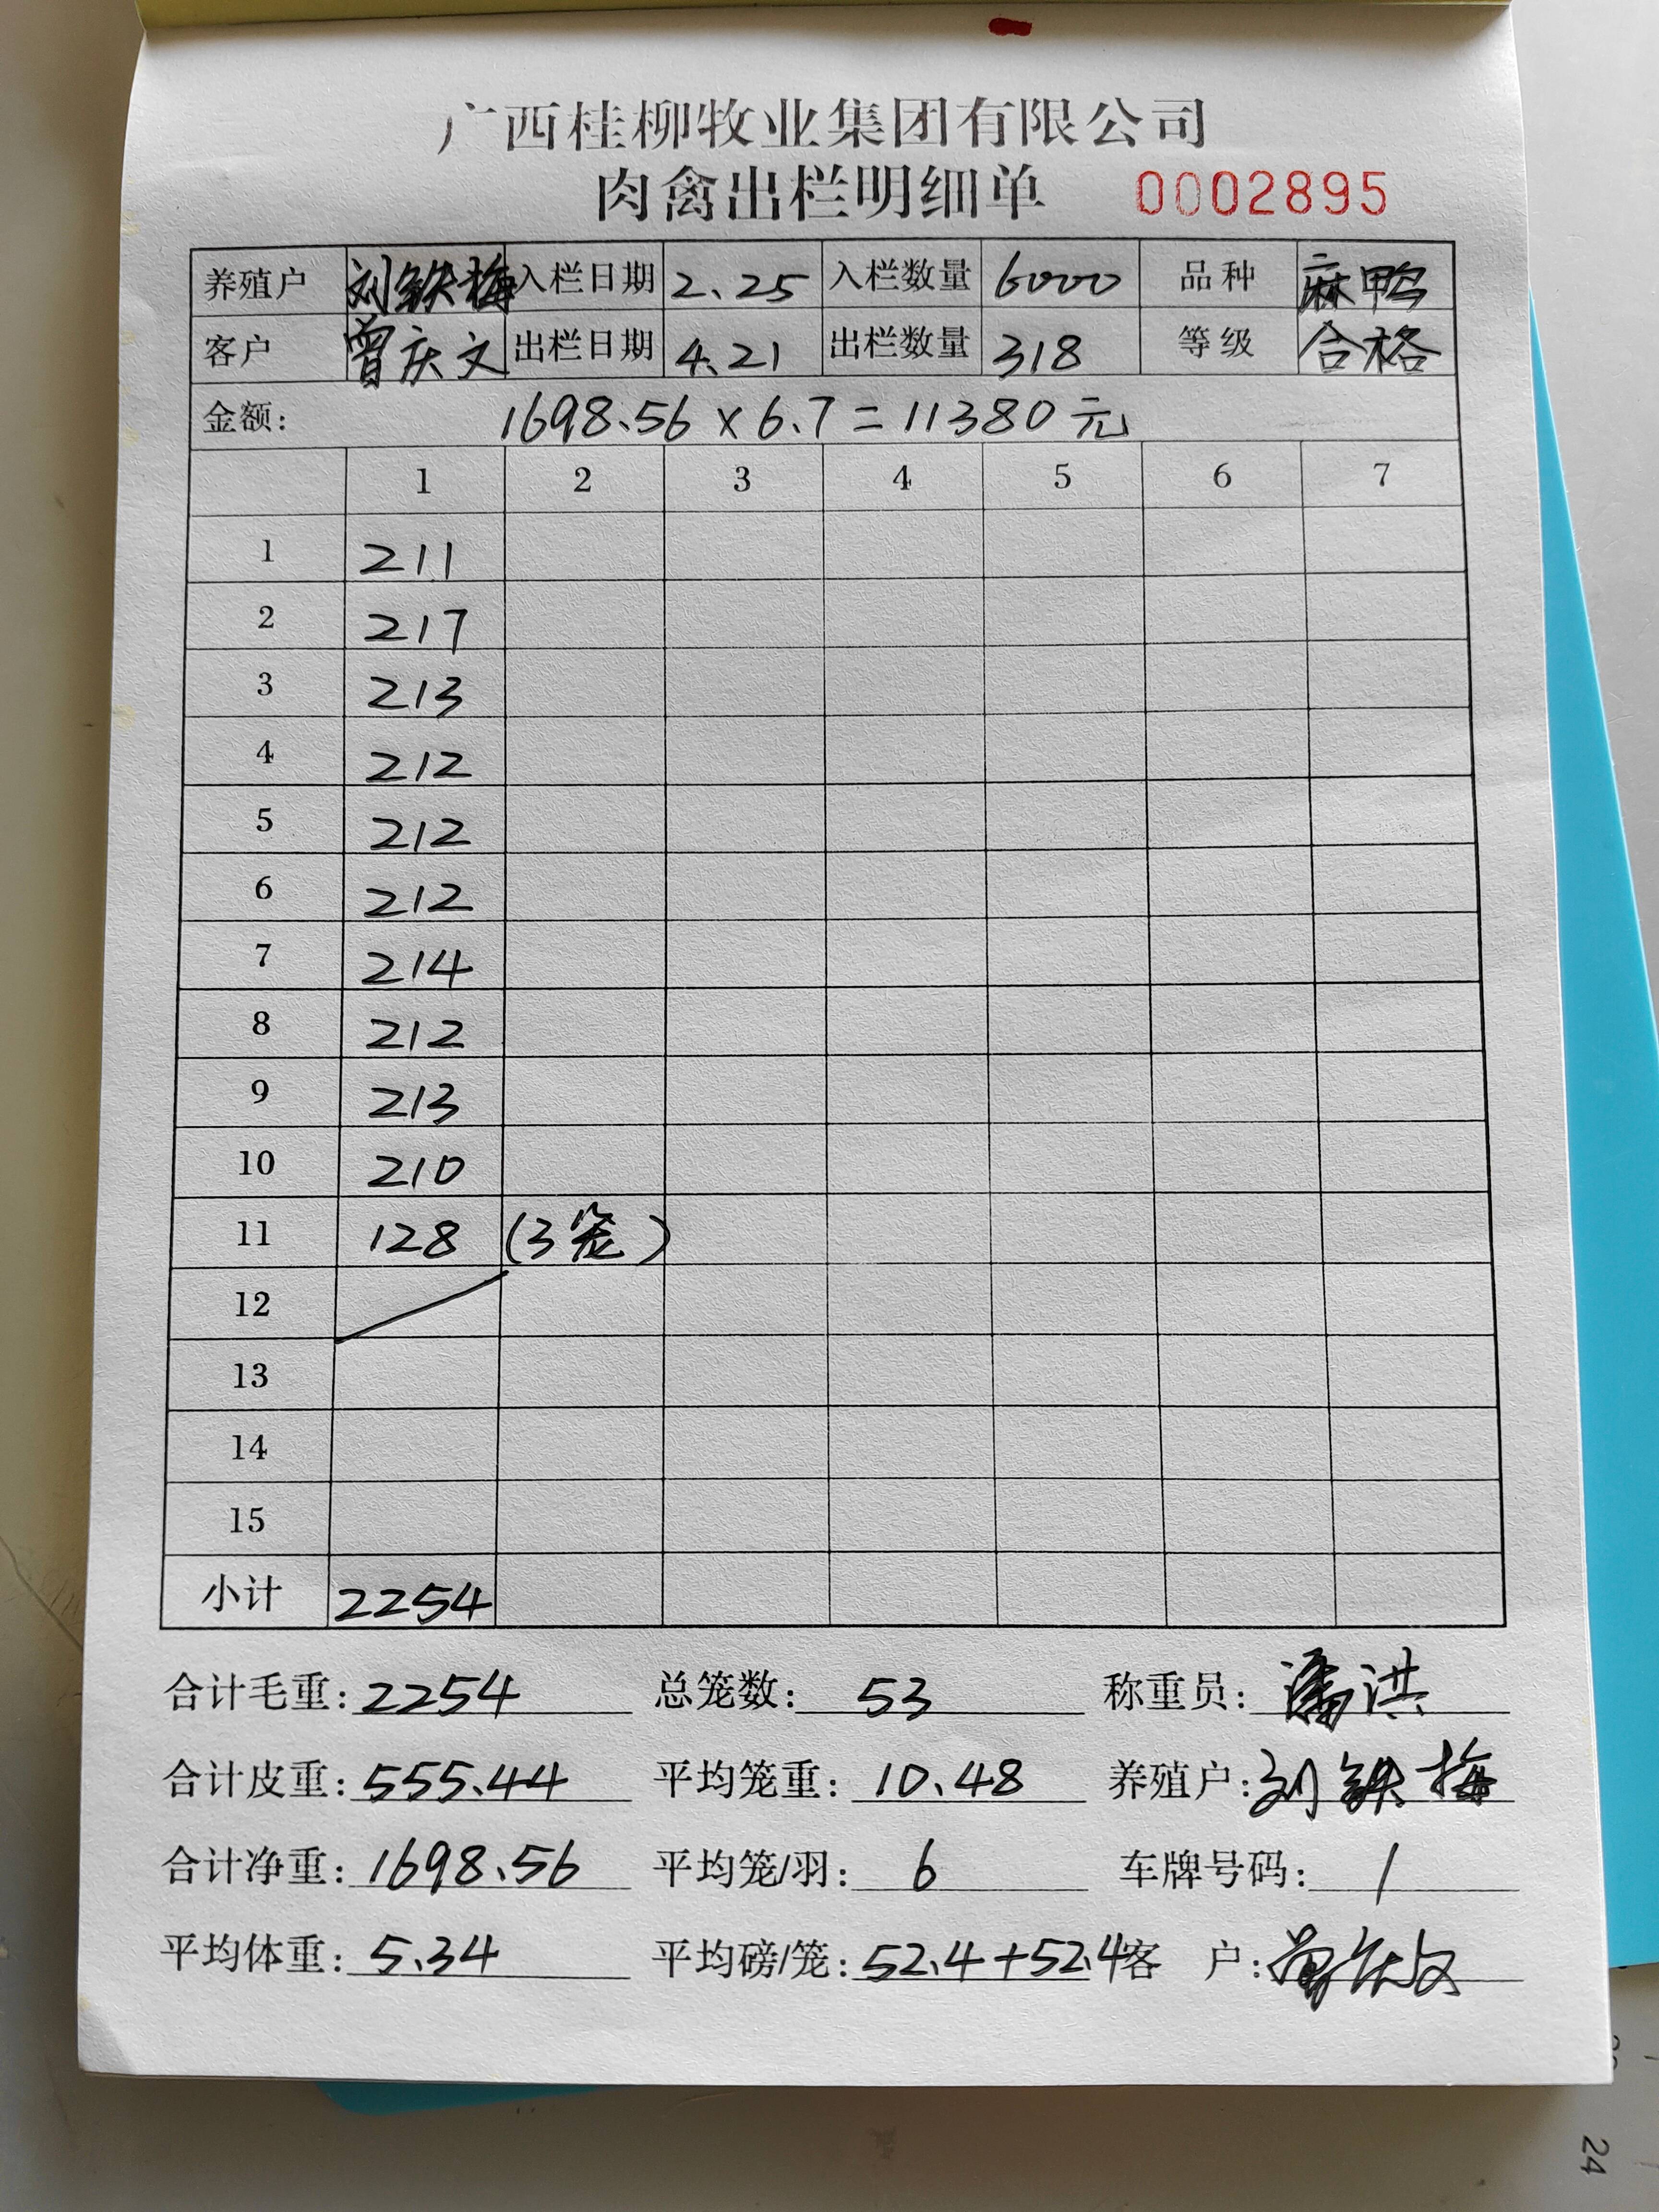 广西桂柳牧业集团有限公司
肉禽出栏明细单 0002895
养殖户 刘铁梅 入栏日期 2.25 入栏数量 6000 品种 麻鸭
客户 曾庆文 出栏日期 4.21 出栏数量 318 等级 合格
金额: 1698.56 × 6.7 = 11380元
1 2 3 4 5 6 7
1 211
2 217
3 213
4 212
5 212
6 212
7 214
8 212
9 213
10 210
11 128 (3笼)
12
13
14
15
小计 2254
合计毛重: 2254 总笼数: 53 称重员: 潘洪
合计皮重: 555.44 平均笼重: 10.48 养殖户: 刘铁梅
合计净重: 1698.56 平均笼/羽: 6 车牌号码: /
平均体重: 5.34 平均磅/笼: 52.4+52.4 客 户: 曾庆文
24